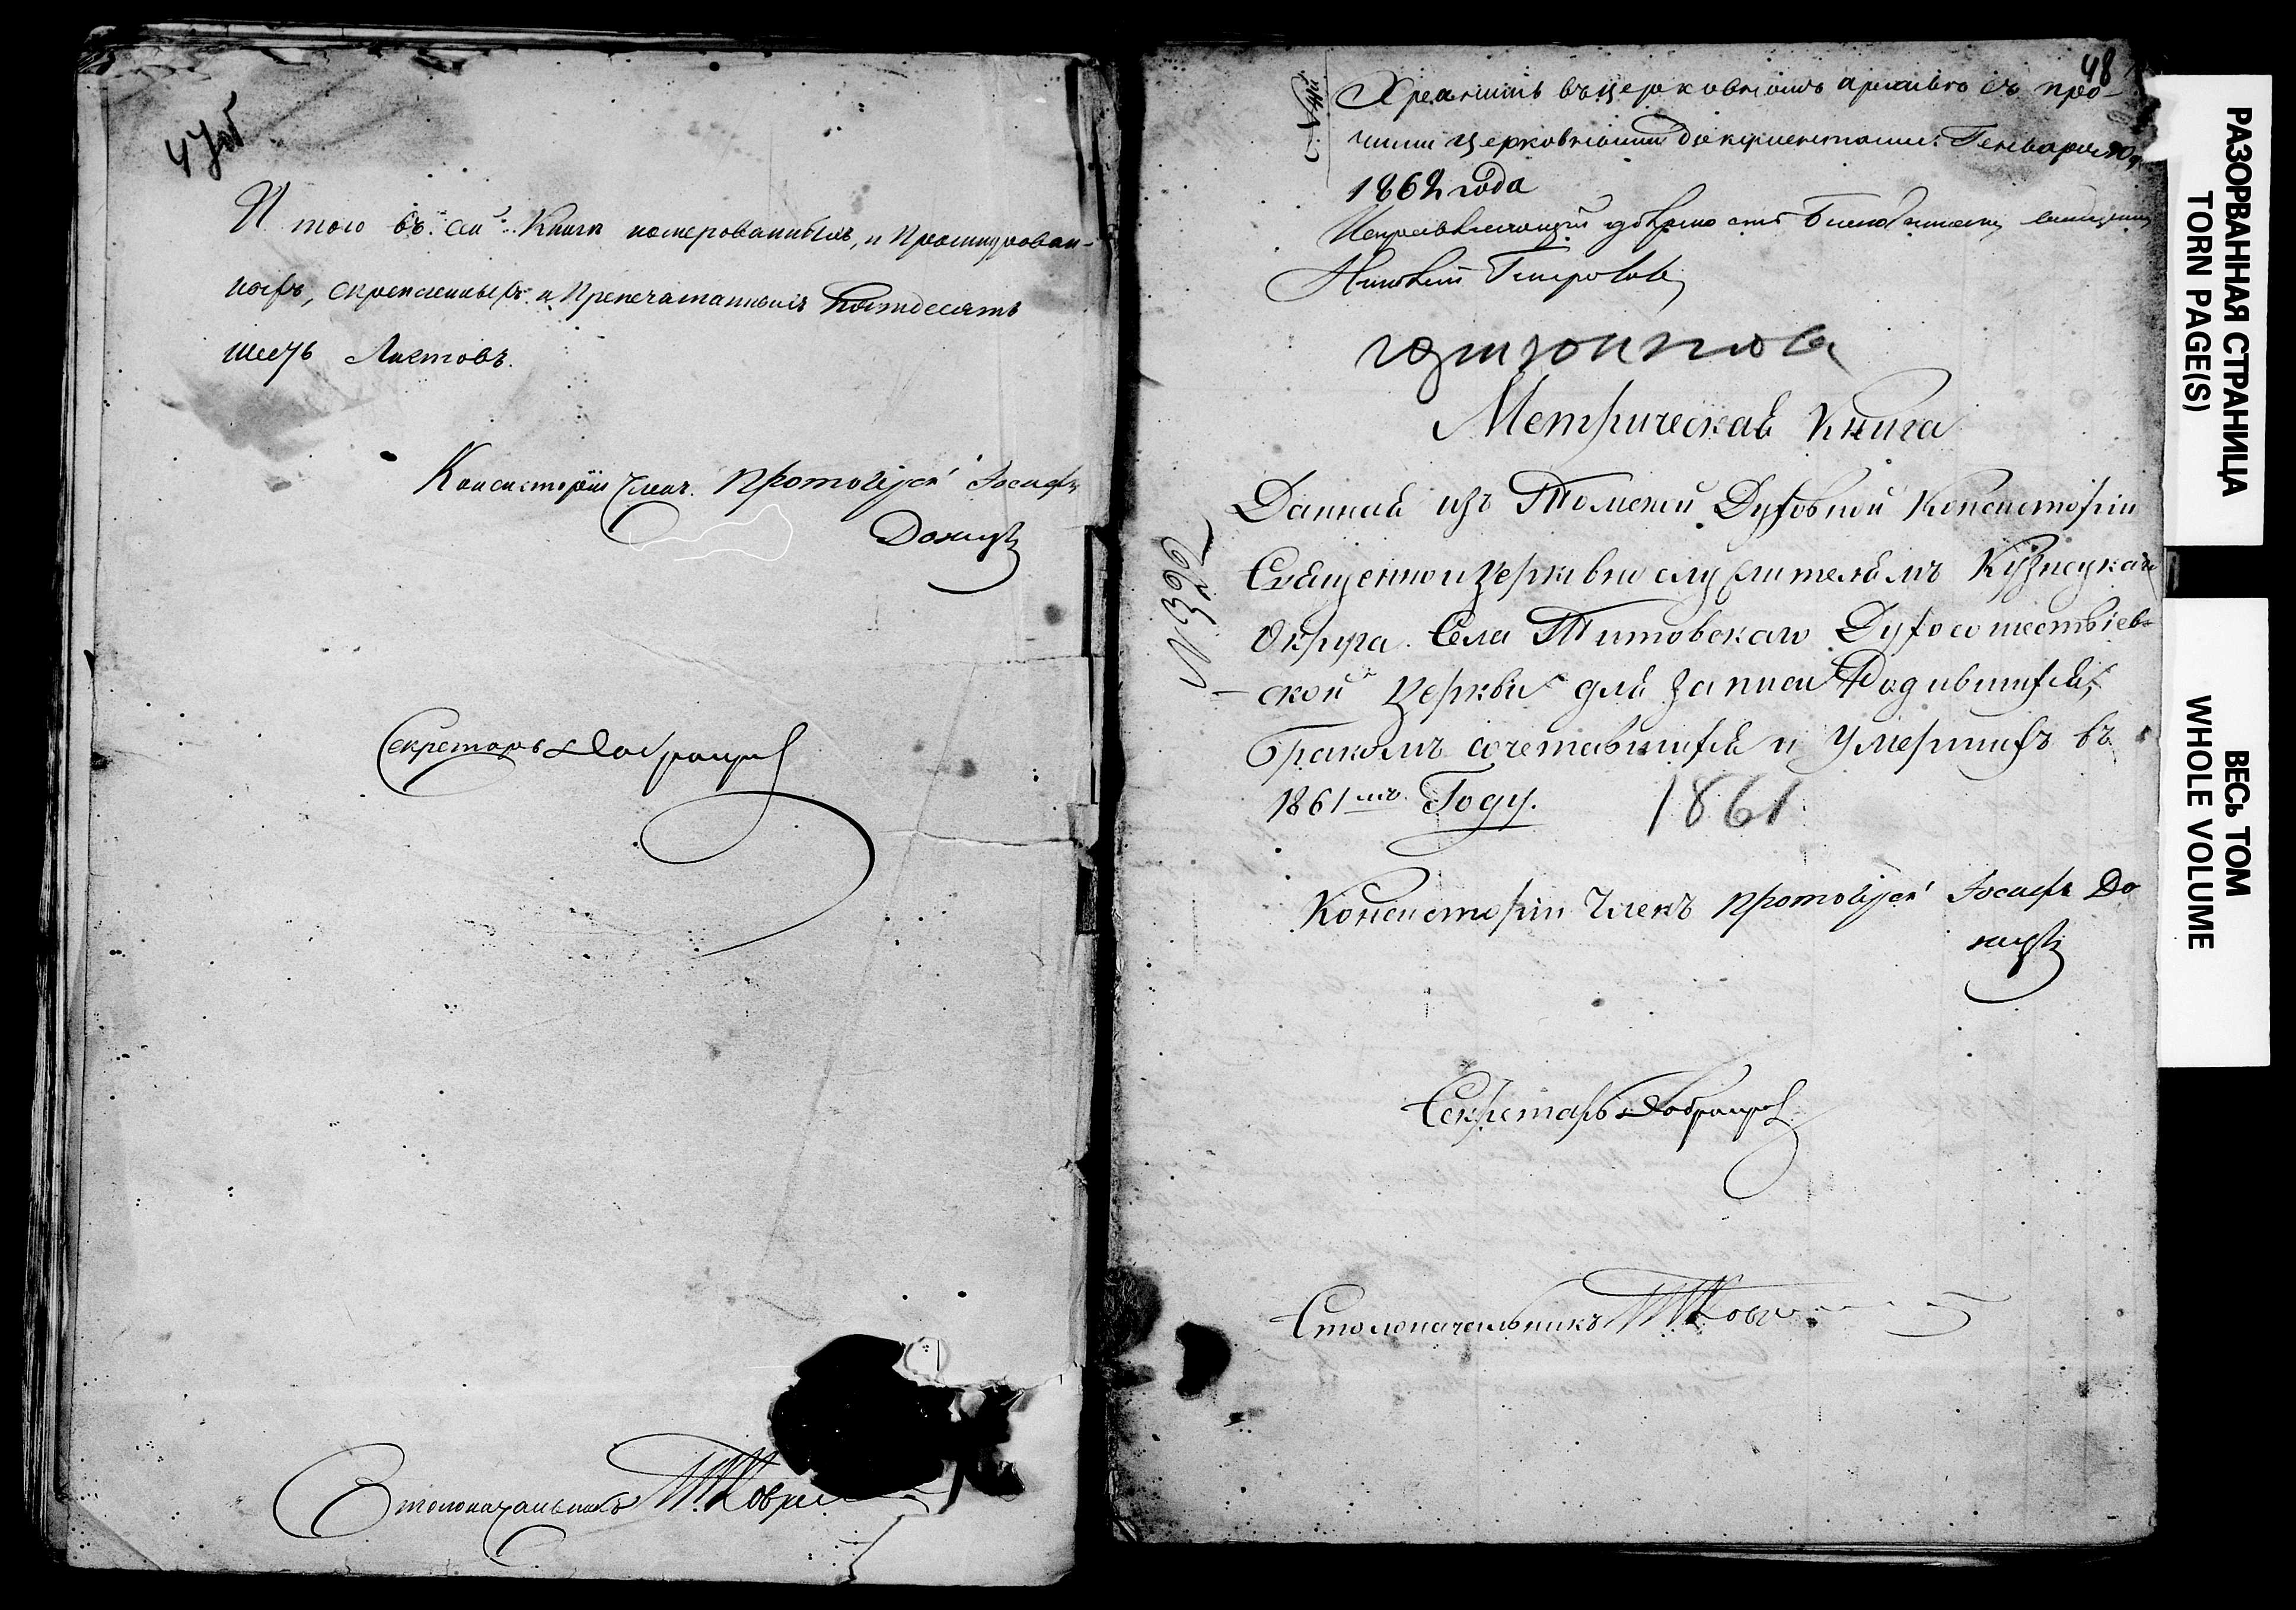 47об
И того въ сей Книгѣ номерованныхъ, и Прошнурован-
ныхъ, скрепленныхъ и Препечатанныхъ Пятдесятъ
шесть Листовъ.
Консисторіи Членъ Протоіерей Іосифъ
Секретарь
Столоначальникъ
48
Хранить въ церковномъ архивѣ съ про-
чими церковными документами. Генваря
1862 года
Метрическая Книга
Данная изъ Томской Духовной Консисторіи
Священно и Церковно служителямъ Кузнецкаго
Округа Села Титовскаго Духосошествіев-
ской Церкви для записи Родившихся,
Бракомъ сочетавшихся и Умершихъ въ
1861мъ Году. 1861
N 392
Консисторіи Членъ Протоіерей Іосифъ До
Секретарь
Столоначальникъ
РАЗОРВАННАЯ СТРАНИЦА
TORN PAGE(S)
ВЕСЬ ТОМ
WHOLE VOLUME